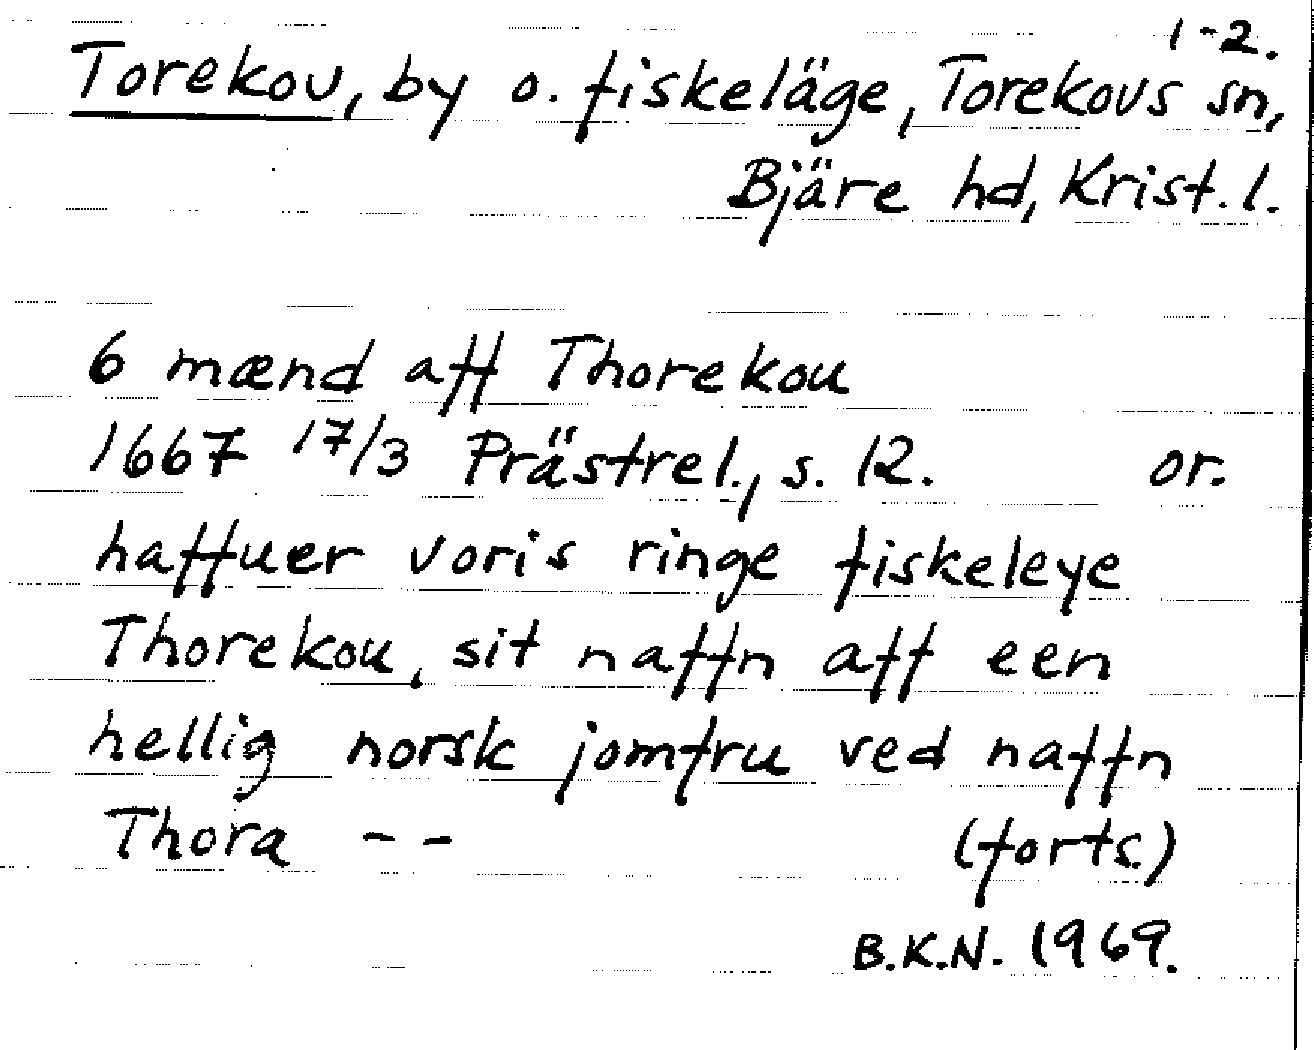 1-2.
Torekov, by o. fiskeläge, Torekovs sn,
Bjäre hd, Krist. l.
6 mænd aff Thorekou
1667 17/3 Prästrel., s. 12. or.
haffuer voris ringe fiskeleye
Thorekou, sit naffn aff een
hellig norsk jomfru ved naffn
Thora -- (forts.)
B.K.N. 1969.